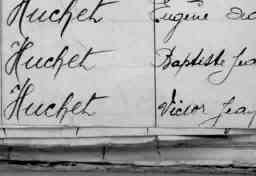 Huchet Eugène
Huchet Baptiste Jea
Huchet Victor Jea